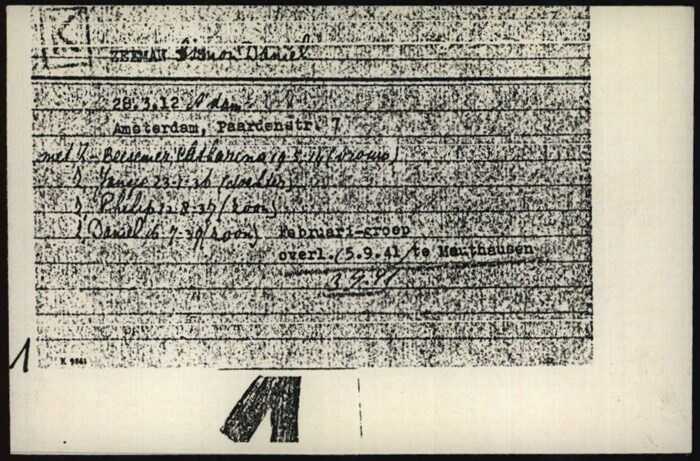 K
ZEEMAN Simon Daniel
28.3.12 A'dam
Amsterdam, Paardenstr. 7
met Z-Beesemer, Catharina 19.5.14 (vrouw)
Z, Jansje 23-7-36 (dochter)
Z, Philip 12-8-37 (zoon)
Z, Daniel 16-7-39 (zoon)
Februari-groep
overl. (5.9.41) te Mauthausen
3.9.41
1
K 9841